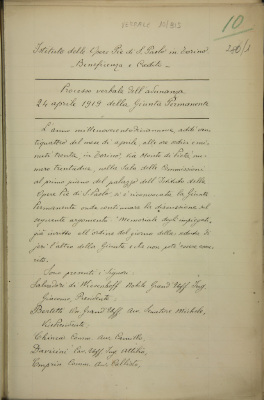 10
Istituto delle Opere Pie di S. Paolo in Torino
Beneficenza e Credito
Processo verbale dell'adunanza
24 aprile 1919 della Giunta Permanente
L'anno millenovecentodiciannove, addì ven
tiquattro del mese di aprile alle ore
minuti trenta, in Torino, via Monte di Pietà, nu
mero trentadue, nella Sala delle Commissioni
al primo piano del palazzo dell'Istituto delle
Opere Pie di S. Paolo si è riunita la Giunta
Permanente onde continuare la discussione sul
seguente argomento: Memoriale degli impiegati,
già iscritto all'ordine del giorno della seduta di
jeri l'altro della Giunta e che non potè essere esau
rito.
Sono presenti i Signori:
Salvadori di Wiesenhoff Nobile Grand'Uff. Ing.
Giacomo, Presidente,
Bertetti Avv. Grand'Uff. Senatore Michele,
Vicepresidente,
Chiesa Comm. Avv. Camillo,
Cav. Uff. Ing. Attilio,
Comm. Avv. Callisto,